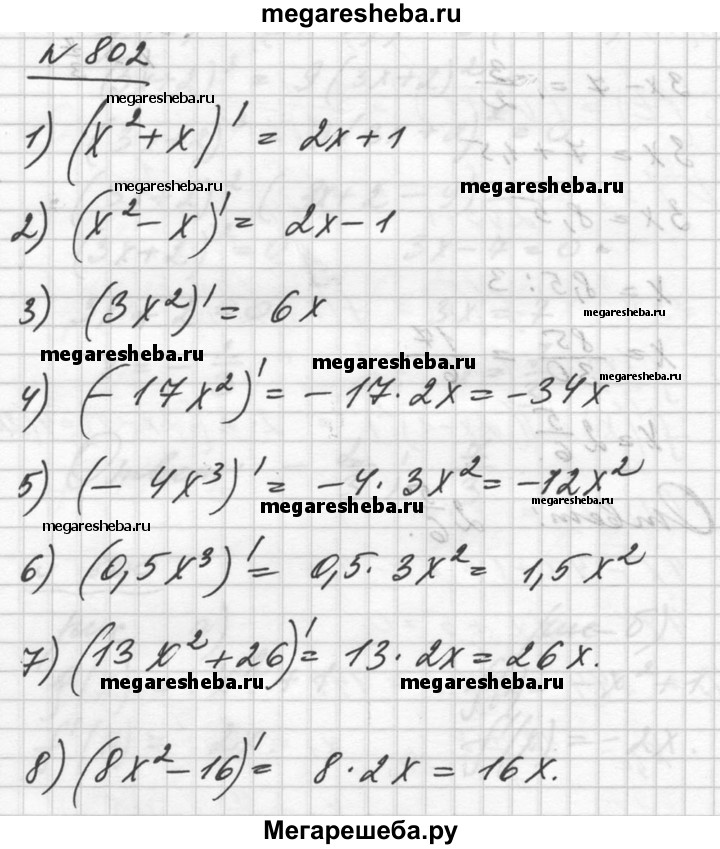 megaresheba.ru
№ 802
megaresheba.ru
1) (x² + x)' = 2x + 1
megaresheba.ru megaresheba.ru
2) (x² - x)' = 2x - 1
3) (3x²)' = 6x
megaresheba.ru
megaresheba.ru megaresheba.ru
megaresheba.ru
4) (- 17x²)' = - 17 · 2x = -34x
5) (- 4x³)' = -4 · 3x² = -12x²
megaresheba.ru megaresheba.ru
megaresheba.ru
6) (0,5x³)' = 0,5 · 3x² = 1,5x²
7) (13x² + 26)' = 13 · 2x = 26x.
megaresheba.ru megaresheba.ru
8) (8x² - 16)' = 8 · 2x = 16x.
Мегарешеба.ру